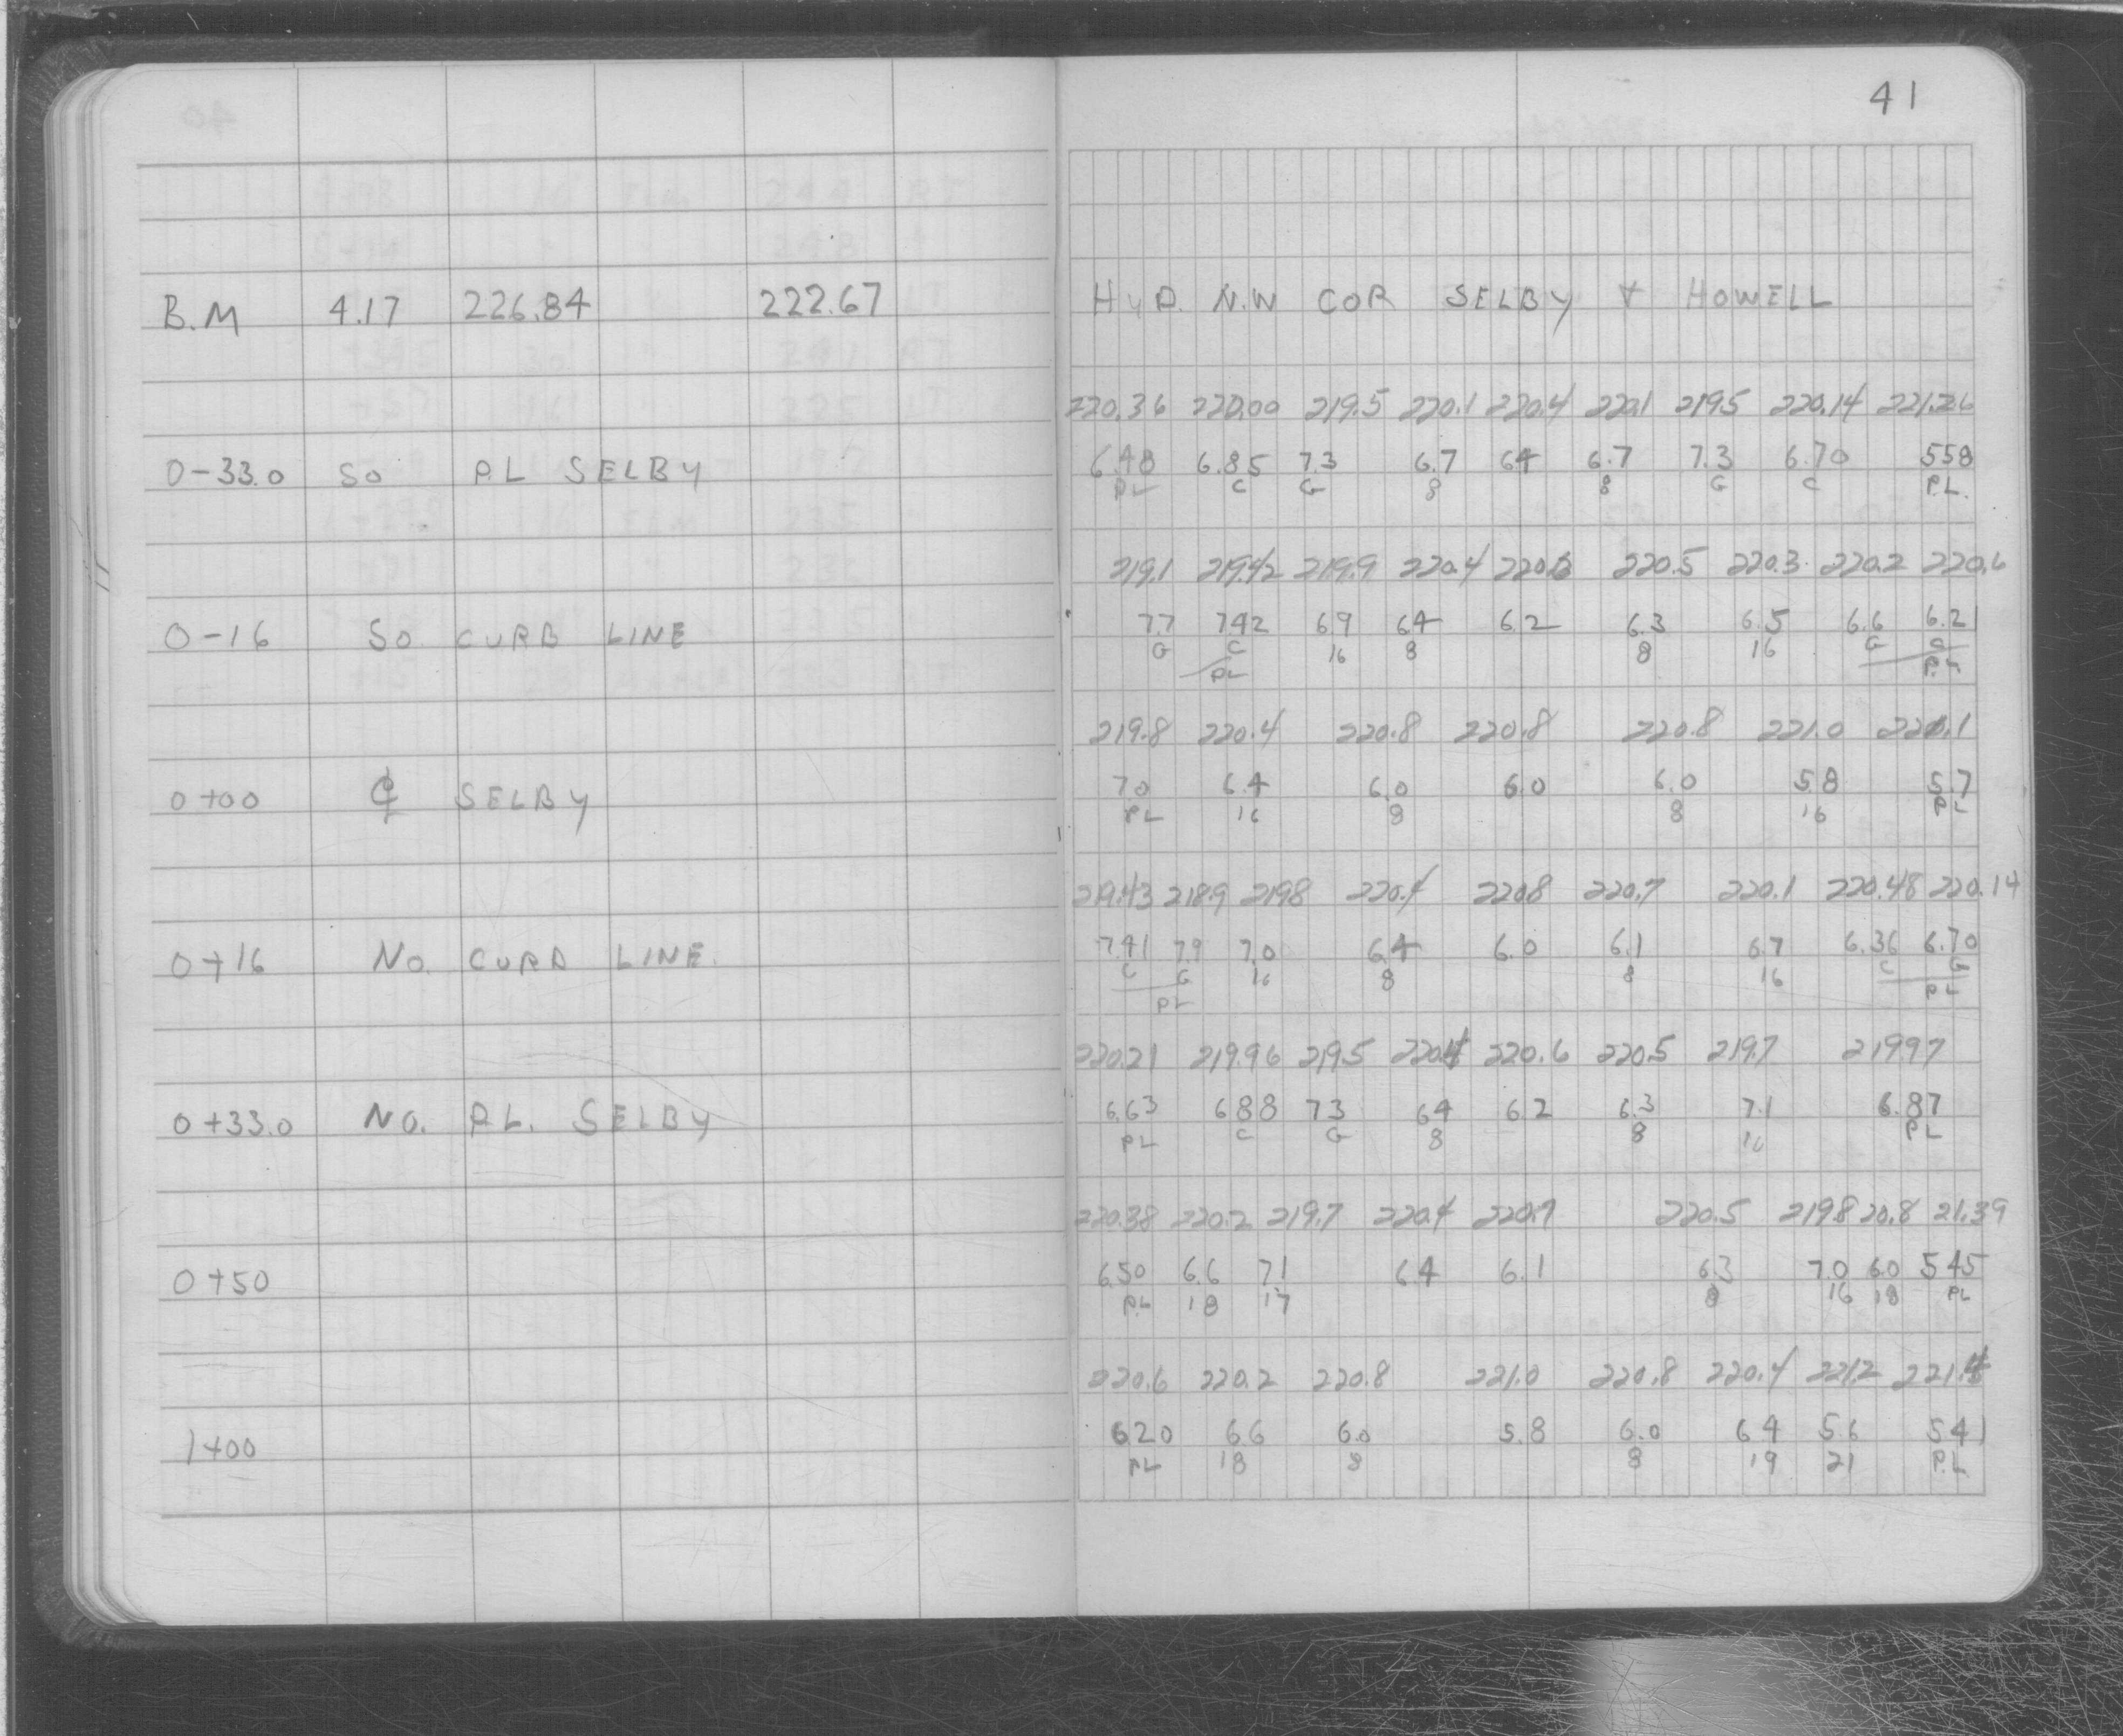 41
B.M 4.17 226.84 222.67 HYD. N.W COR SELBY & HOWELL
220.36 220.00 219.5 220.1 220.4 220.1 219.5 220.14 221.26
0-33.0 SO P.L SELBY 6.48 6.85 7.3 6.7 6.4 6.7 7.3 6.70 5.58
PL C G 8 8 G C P.L.
219.1 219.42 219.9 220.4 220.6 220.5 220.3 220.2 220.6
0-16 SO CURB LINE 7.7 7.42 6.9 6.4 6.2 6.3 6.5 6.6 6.2
G C 16 8 8 16 G C
PL P.L.
219.8 220.4 220.8 220.8 220.8 221.0 221.1
0+00 ℄ SELBY 7.0 6.4 6.0 6.0 6.0 5.8 5.7
PL 16 8 8 16 PL
219.43 218.9 219.8 220.4 220.8 220.7 220.1 220.48 220.14
0+16 NO. CURB LINE. 7.41 7.9 7.0 6.4 6.0 6.1 6.7 6.36 6.70
C G 16 8 8 16 C G
PL PL
220.21 219.96 219.5 220.4 220.6 220.5 219.7 219.97
0+33.0 NO. P.L. SELBY 6.63 6.88 7.3 6.4 6.2 6.3 7.1 6.87
PL C G 8 8 16 PL
220.38 220.2 219.7 220.4 220.7 220.5 219.8 20.8 21.39
0+50 6.50 6.6 7.1 6.4 6.1 6.3 7.0 6.0 5.45
P.L 18 17 8 16 18 PL
220.6 220.2 220.8 221.0 220.8 220.4 221.2 221.4
1+00 6.20 6.6 6.0 5.8 6.0 6.4 5.6 5.41
PL 18 8 8 19 21 P.L